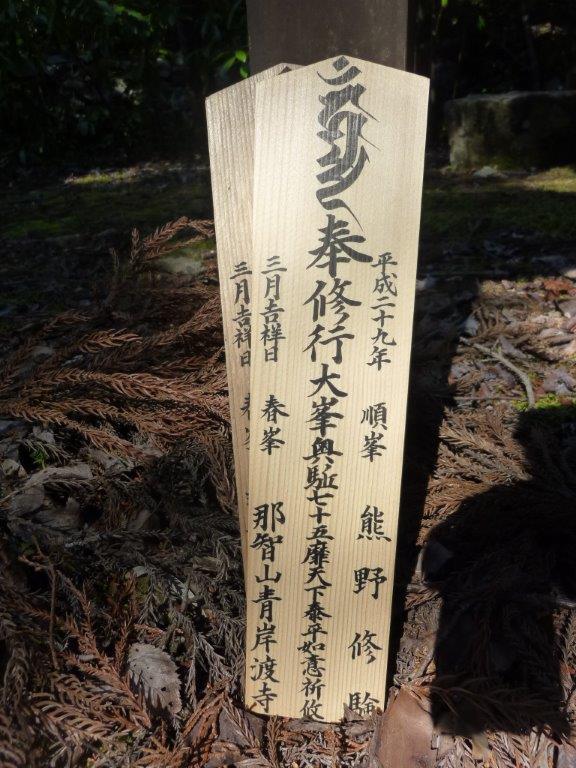 奉修行大峯奥駈七十五靡天下泰平如意祈攸
平成二十九年 順峯 熊野修験
三月吉祥日 春峯 那智山青岸渡寺
三月吉祥日 春峯